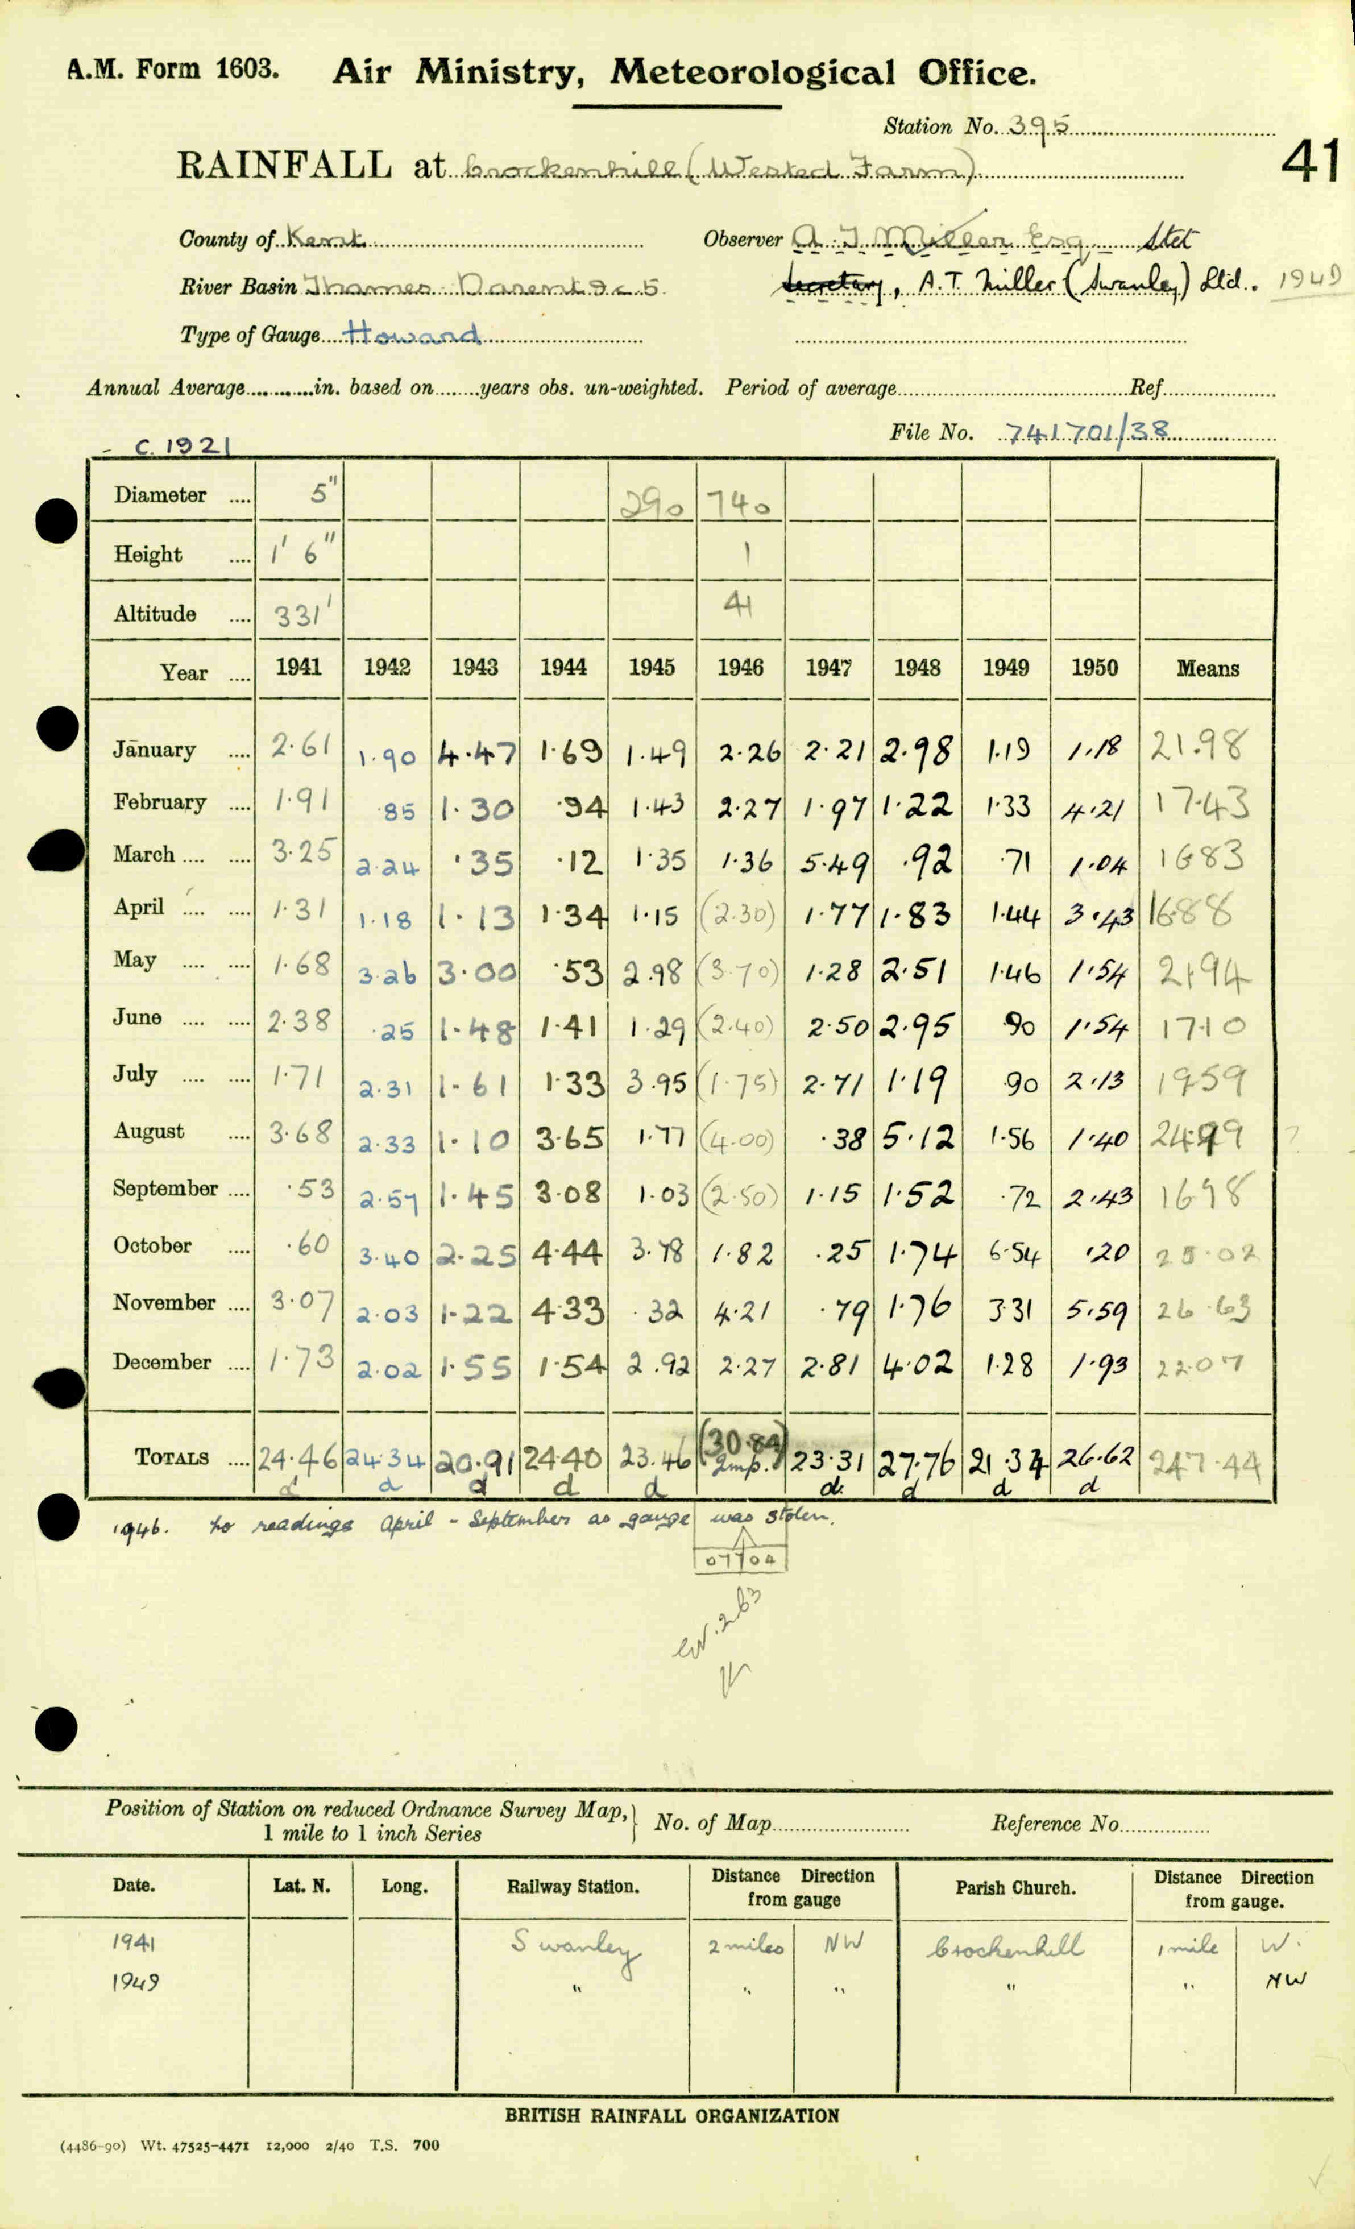 A.M. Form 1603. Air Ministry, Meteorological Office.
Station No. 395
41
RAINFALL at Crockenhill (Wested Farm)
County of Kent Observer A T Miller Esq Stet
River Basin Thames Darent 9c5 Secretary, A.T. Miller (Swanley) Ltd. 1949
Type of Gauge Howard
Annual Average in. based on years obs. un-weighted. Period of average Ref
File No. 741701/38
- c. 1921
Diameter .... 5" 290 740
Height .... 1' 6" 1
Altitude .... 331' 41
Year .... 1941 1942 1943 1944 1945 1946 1947 1948 1949 1950 Means
January .... 2·61 1·90 4·47 1·69 1·49 2·26 2·21 2·98 1·19 1·18 21.98
February .... 1·91 ·85 1·30 ·94 1·43 2·27 1·97 1·22 1·33 4·21 17·43
March .... .... 3·25 2·24 ·35 ·12 1·35 1·36 5·49 ·92 ·71 1·04 1683
April .... .... 1·31 1·18 1·13 1·34 1·15 (2·30) 1·77 1·83 1·44 3·43 1688
May .... .... 1·68 3·26 3·00 ·53 2·98 (3·70) 1·28 2·51 1·46 1·54 21·94
June .... .... 2·38 ·25 1·48 1·41 1·29 (2·40) 2·50 2·95 ·90 1·54 17·10
July .... .... 1·71 2·31 1·61 1·33 3·95 (1·75) 2·71 1·19 ·90 2·13 1959
August .... 3·68 2·33 1·10 3·65 1·77 (4·00) ·38 5·12 1·56 1·40 2499 ?
September .... ·53 2·57 1·45 3·08 1·03 (2·50) 1·15 1·52 ·72 2·43 1698
October .... ·60 3·40 2·25 4·44 3·78 1·82 ·25 1·74 6·54 ·20 25·02
November .... 3·07 2·03 1·22 4·33 ·32 4·21 ·79 1·76 3·31 5·59 26·63
December .... 1·73 2·02 1·55 1·54 2·92 2·27 2·81 4·02 1·28 1·93 22·07
TOTALS .... 24·46 24·34 20·91 24·40 23·46 (30·84) 23·31 27·76 21·34 26·62 247·44
d d d d d Imp. d d d d
1946. No readings April - September as gauge was stolen.
07704
W. 2.63
Position of Station on reduced Ordnance Survey Map, } No. of Map Reference No
1 mile to 1 inch Series
Date. Lat. N. Long. Railway Station. Distance Direction from gauge Parish Church. Distance Direction from gauge.
1941 Swanley 2 miles NW Crockenhill 1 mile W.
1949 " " " " " NW
BRITISH RAINFALL ORGANIZATION
(4486-90) Wt. 47525-4471 12,000 2/40 T.S. 700